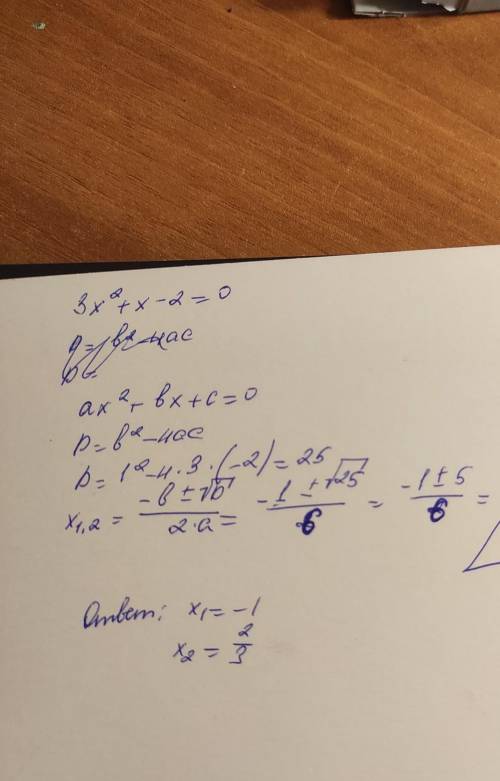 3x² + x - 2 = 0
D = b² - 4ac
D =
ax² + bx + c = 0
D = b² - 4ac
D = 1² - 4 · 3 · (-2) = 25
x₁,₂ = (-b ± √D)/(2·a) = (-1 ± √25)/6 = (-1 ± 5)/6 =
Ответ: x₁ = -1
x₂ = 2/3